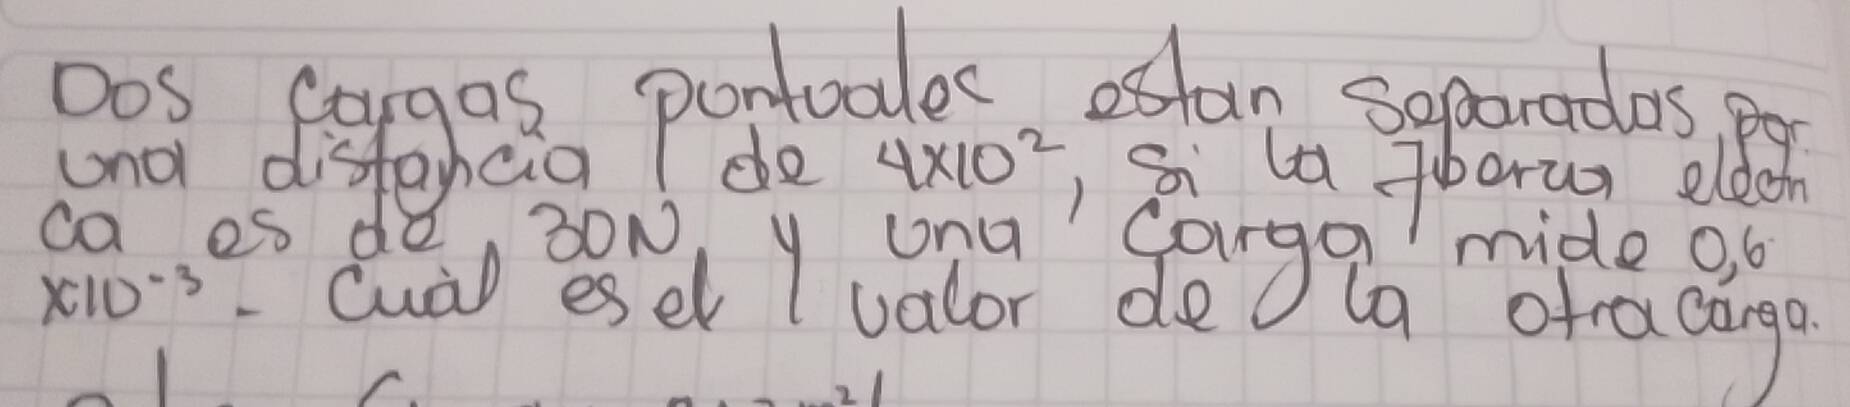 Dos cargas pontoales estan separadas por
una distancia de 4x10², si la fuerza eléctri
ca es de 30N, y una carga mide 0,6
x10⁻³. Cuál es el valor de la otra carga.